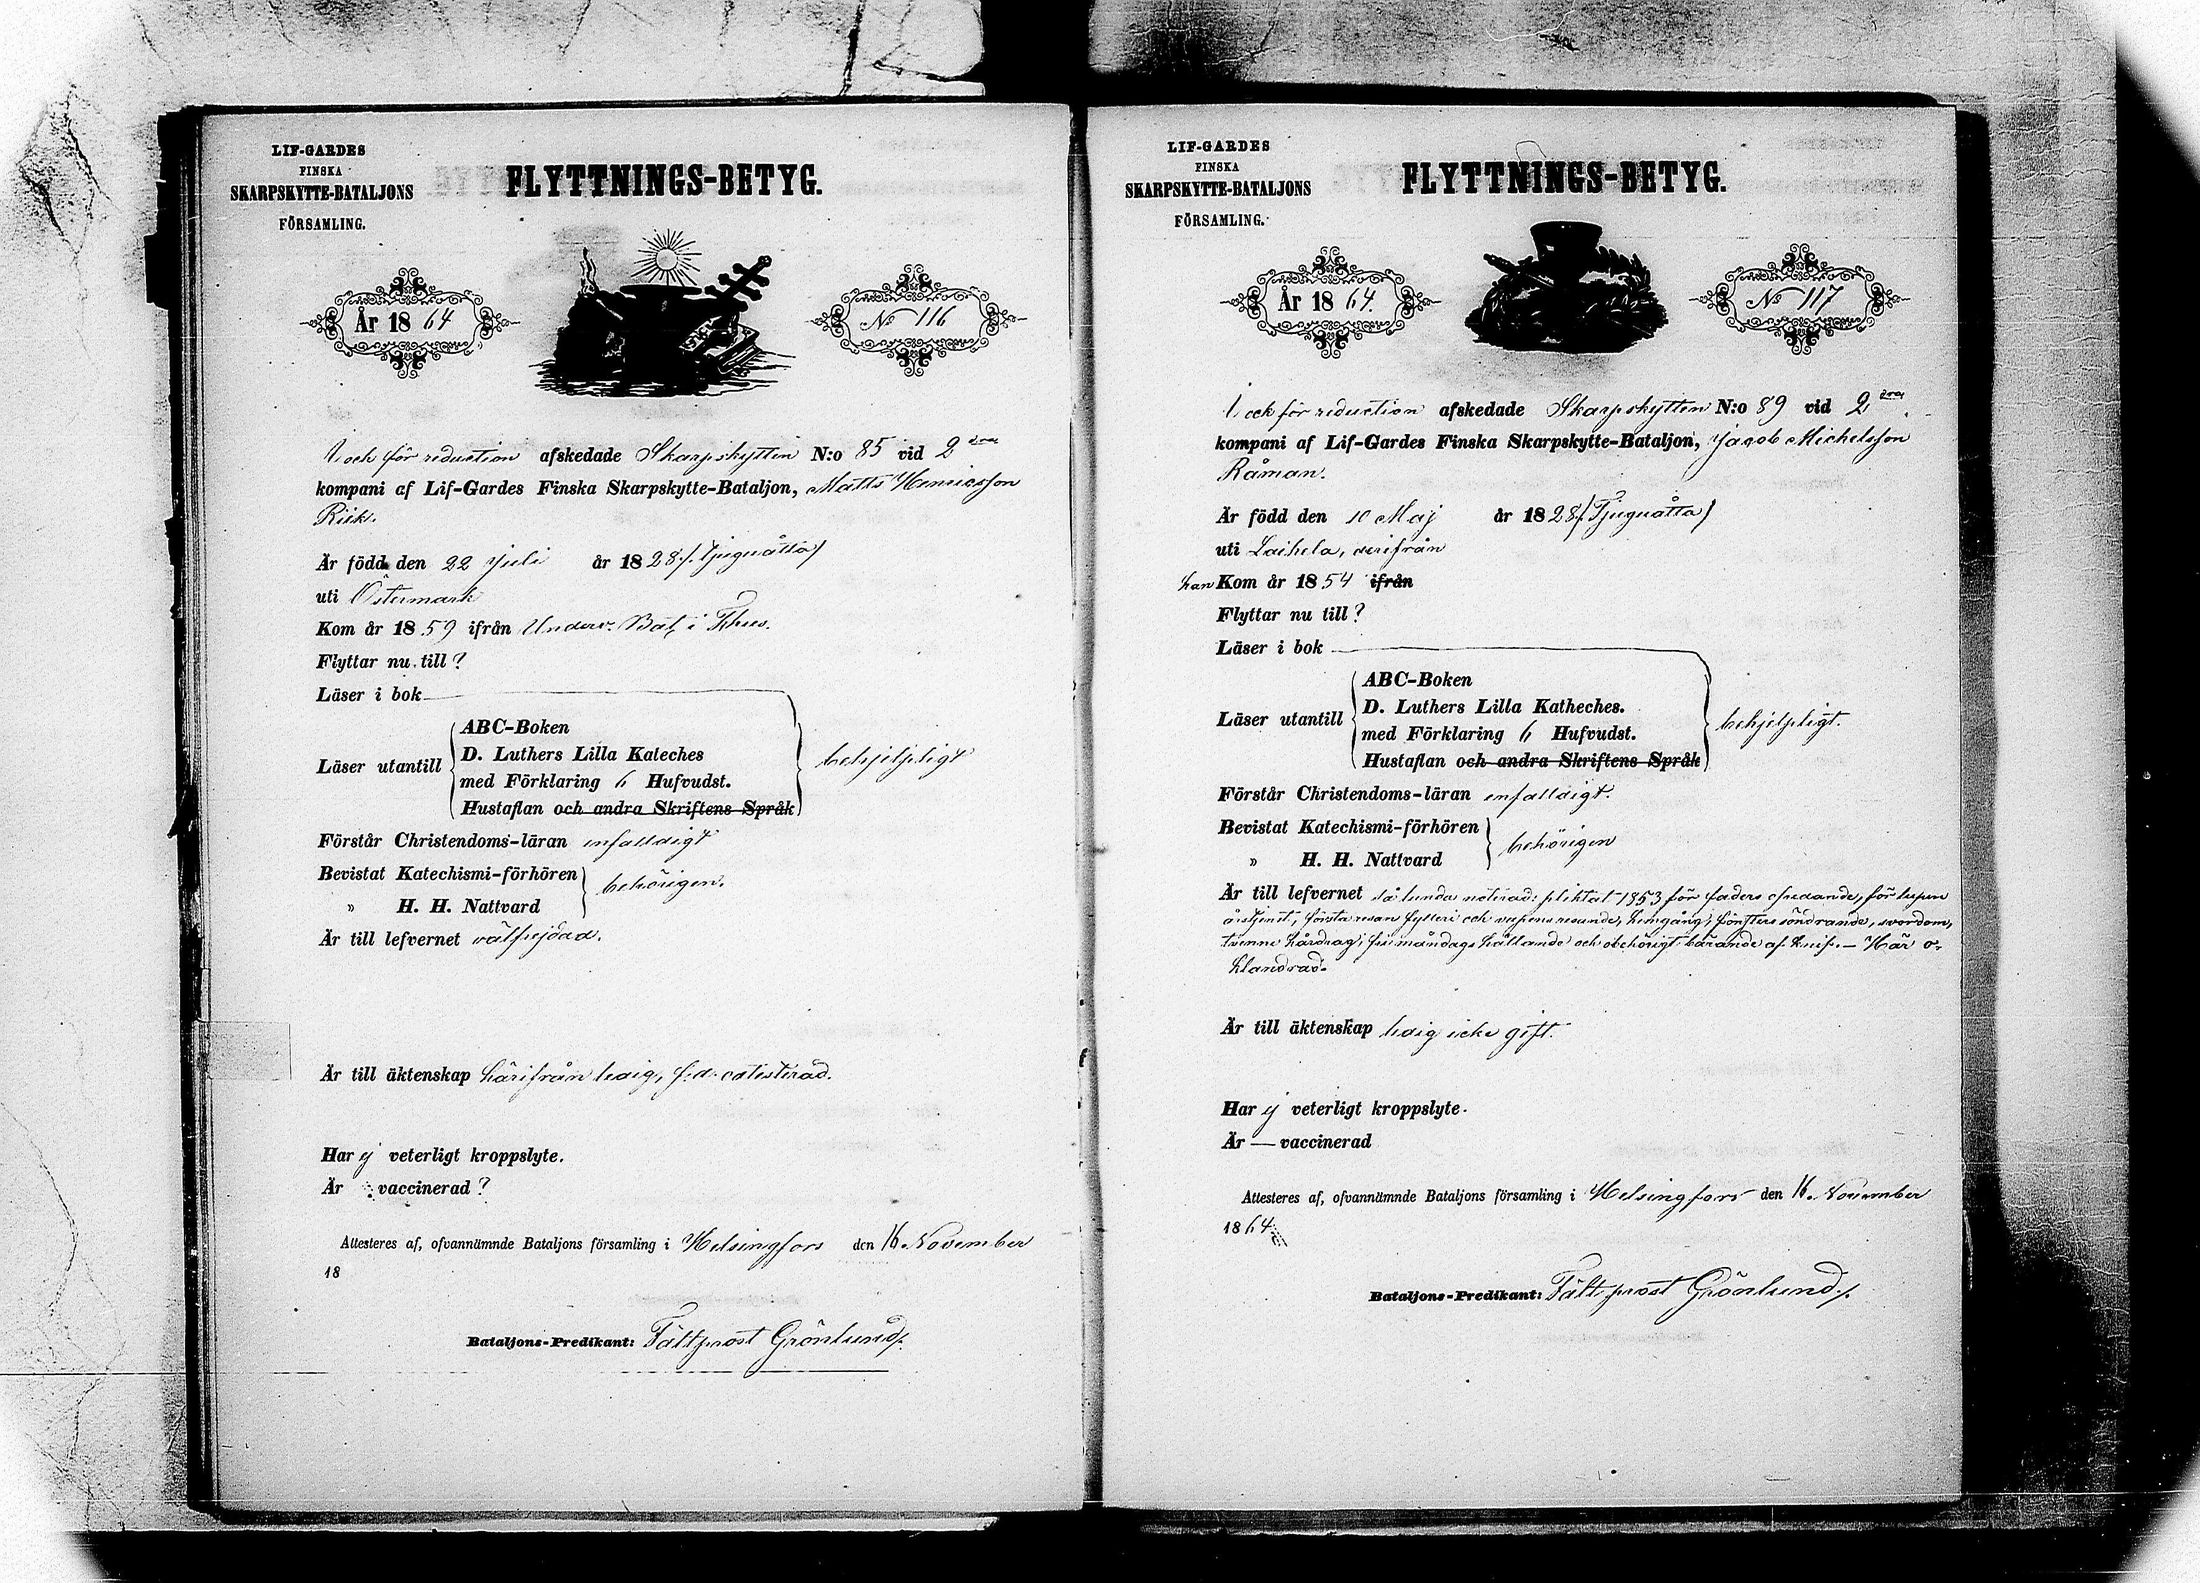 LIF-GARDES
FINSKA
SKARPSKYTTE-BATALJONS
FÖRSAMLING.
FLYTTNINGS-BETYG.
År 1864
No 116
och för reduction afskedade Skarpskytten N:o 85 vid 2dra
kompani af Lif-Gardes Finska Skarpskytte-Bataljon, Matts Henricsson
Riik.
Är född den 22 Juli år 1828 /:Tjuguåtta/
uti Östermark
Kom år 1859 ifrån Underv. Bat. i Thus.
Flyttar nu till?
Läser i bok
Läser utantill
ABC-Boken
D. Luthers Lilla Kateches
med Förklaring 6 Hufvudst.
Hustaflan och andra Skriftens Språk
behjelpligt
Förstår Christendoms-läran enfaldigt
Bevistat Katechismi-förhören
" H. H. Nattvard
behörigen.
Är till lefvernet välfrejdad.
Är till äktenskap härifrån ledig, f.d. attesterad.
Har ej veterligt kroppslyte.
Är vaccinerad?
Attesteres af, ofvannämnde Bataljons församling i Helsingfors den 16 November
18
Bataljons-Predikant: Fältprost Grönlund/.
LIF-GARDES
FINSKA
SKARPSKYTTE-BATALJONS
FÖRSAMLING.
FLYTTNINGS-BETYG.
År 1864.
No 117
och för reduction afskedade Skarpskytten N:o 89 vid 2dra
kompani af Lif-Gardes Finska Skarpskytte-Bataljon, Jacob Michelsson
Råman.
Är född den 10 Maj år 1828 /:Tjuguåtta/
uti Laihela, derifrån
han Kom år 1854 ifrån
Flyttar nu till?
Läser i bok
Läser utantill
ABC-Boken
D. Luthers Lilla Katheches.
med Förklaring 6 Hufvudst.
Hustaflan och andra Skriftens Språk
behjelpligt.
Förstår Christendoms-läran enfaldigt.
Bevistat Katechismi-förhören
" H. H. Nattvard
behörigen
Är till lefvernet sålunda noterad: pliktat 1853 för faders ofredande, förlupen
årstjenst, första resan fylleri och vapens resande, hemgång, fönsters söndrande, svordom,
tvenne hårdrag, frimåndags hållande och obehörigt bärande af knif. – Här o-
klandrad.
Är till äktenskap ledig icke gift.
Har ej veterligt kroppslyte.
Är — vaccinerad
Attesteres af, ofvannämnde Bataljons församling i Helsingfors den 16. November
1864
Bataljons-Predikant: Fältprost Grönlund/.